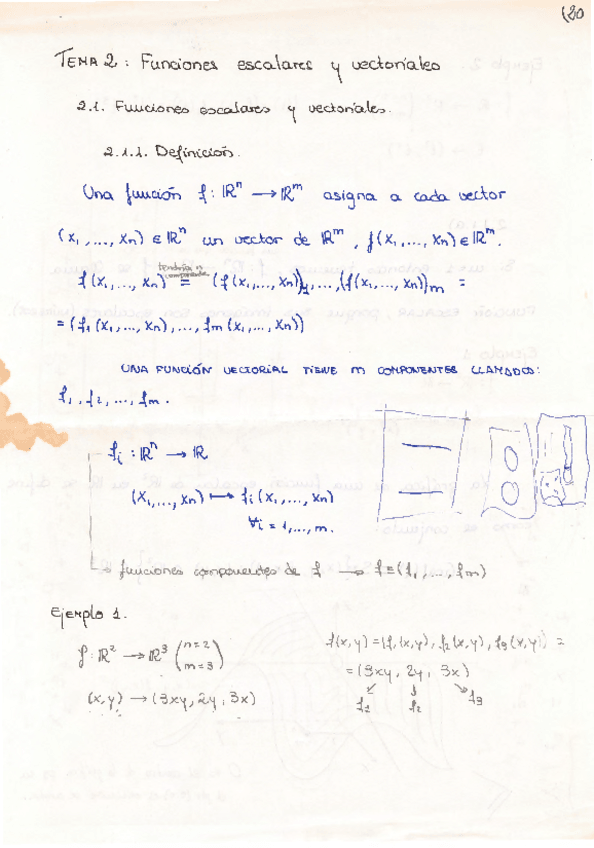 (20
TEMA 2: Funciones escalares y vectoriales
2.1. Funciones escalares y vectoriales.
2.1.1. Definición.
Una función f: ℝⁿ → ℝᵐ asigna a cada vector
(x₁,...,xₙ) ∈ ℝⁿ un vector de ℝᵐ, f(x₁,...,xₙ) ∈ ℝᵐ.
tendría n componentes
f(x₁,...,xₙ) = (f(x₁,...,xₙ))₁,...,(f(x₁,...,xₙ))ₘ =
= (f₁(x₁,...,xₙ),...,fₘ(x₁,...,xₙ))
UNA FUNCIÓN VECTORIAL TIENE m COMPONENTES LLAMADOS:
f₁, f₂,..., fₘ.
fᵢ: ℝⁿ → ℝ
(x₁,...,xₙ) ↦ fᵢ(x₁,...,xₙ)
∀i = 1,...,m.
funciones componentes de f → f ≡ (f₁,...,fₘ)
Ejemplo 1.
f: ℝ² → ℝ³ (n=2
m=3)
(x,y) → (3xy, 2y, 3x)
f(x,y) = (f₁(x,y), f₂(x,y), f₃(x,y)) =
= (3xy, 2y, 3x)
f₁ f₂ f₃